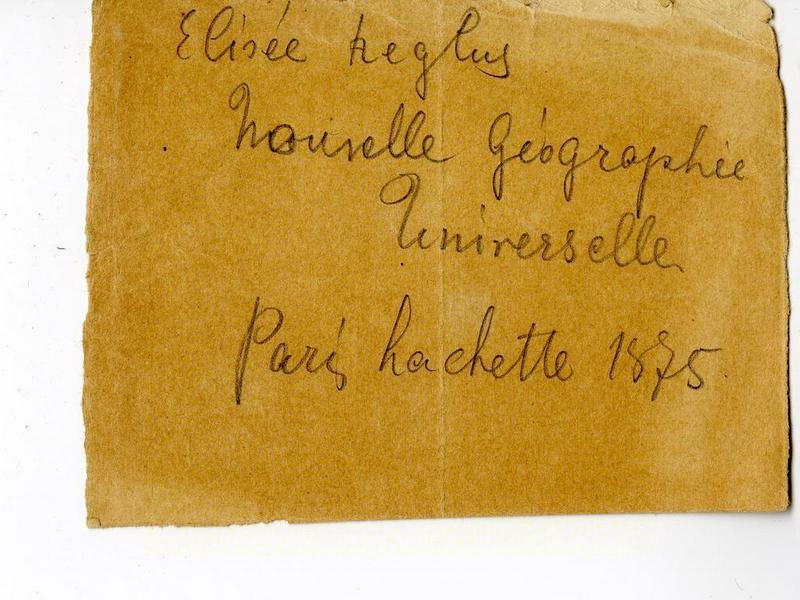 Elisée Reglus
Nouvelle Géographie
Universelle
Paris hachette 1875